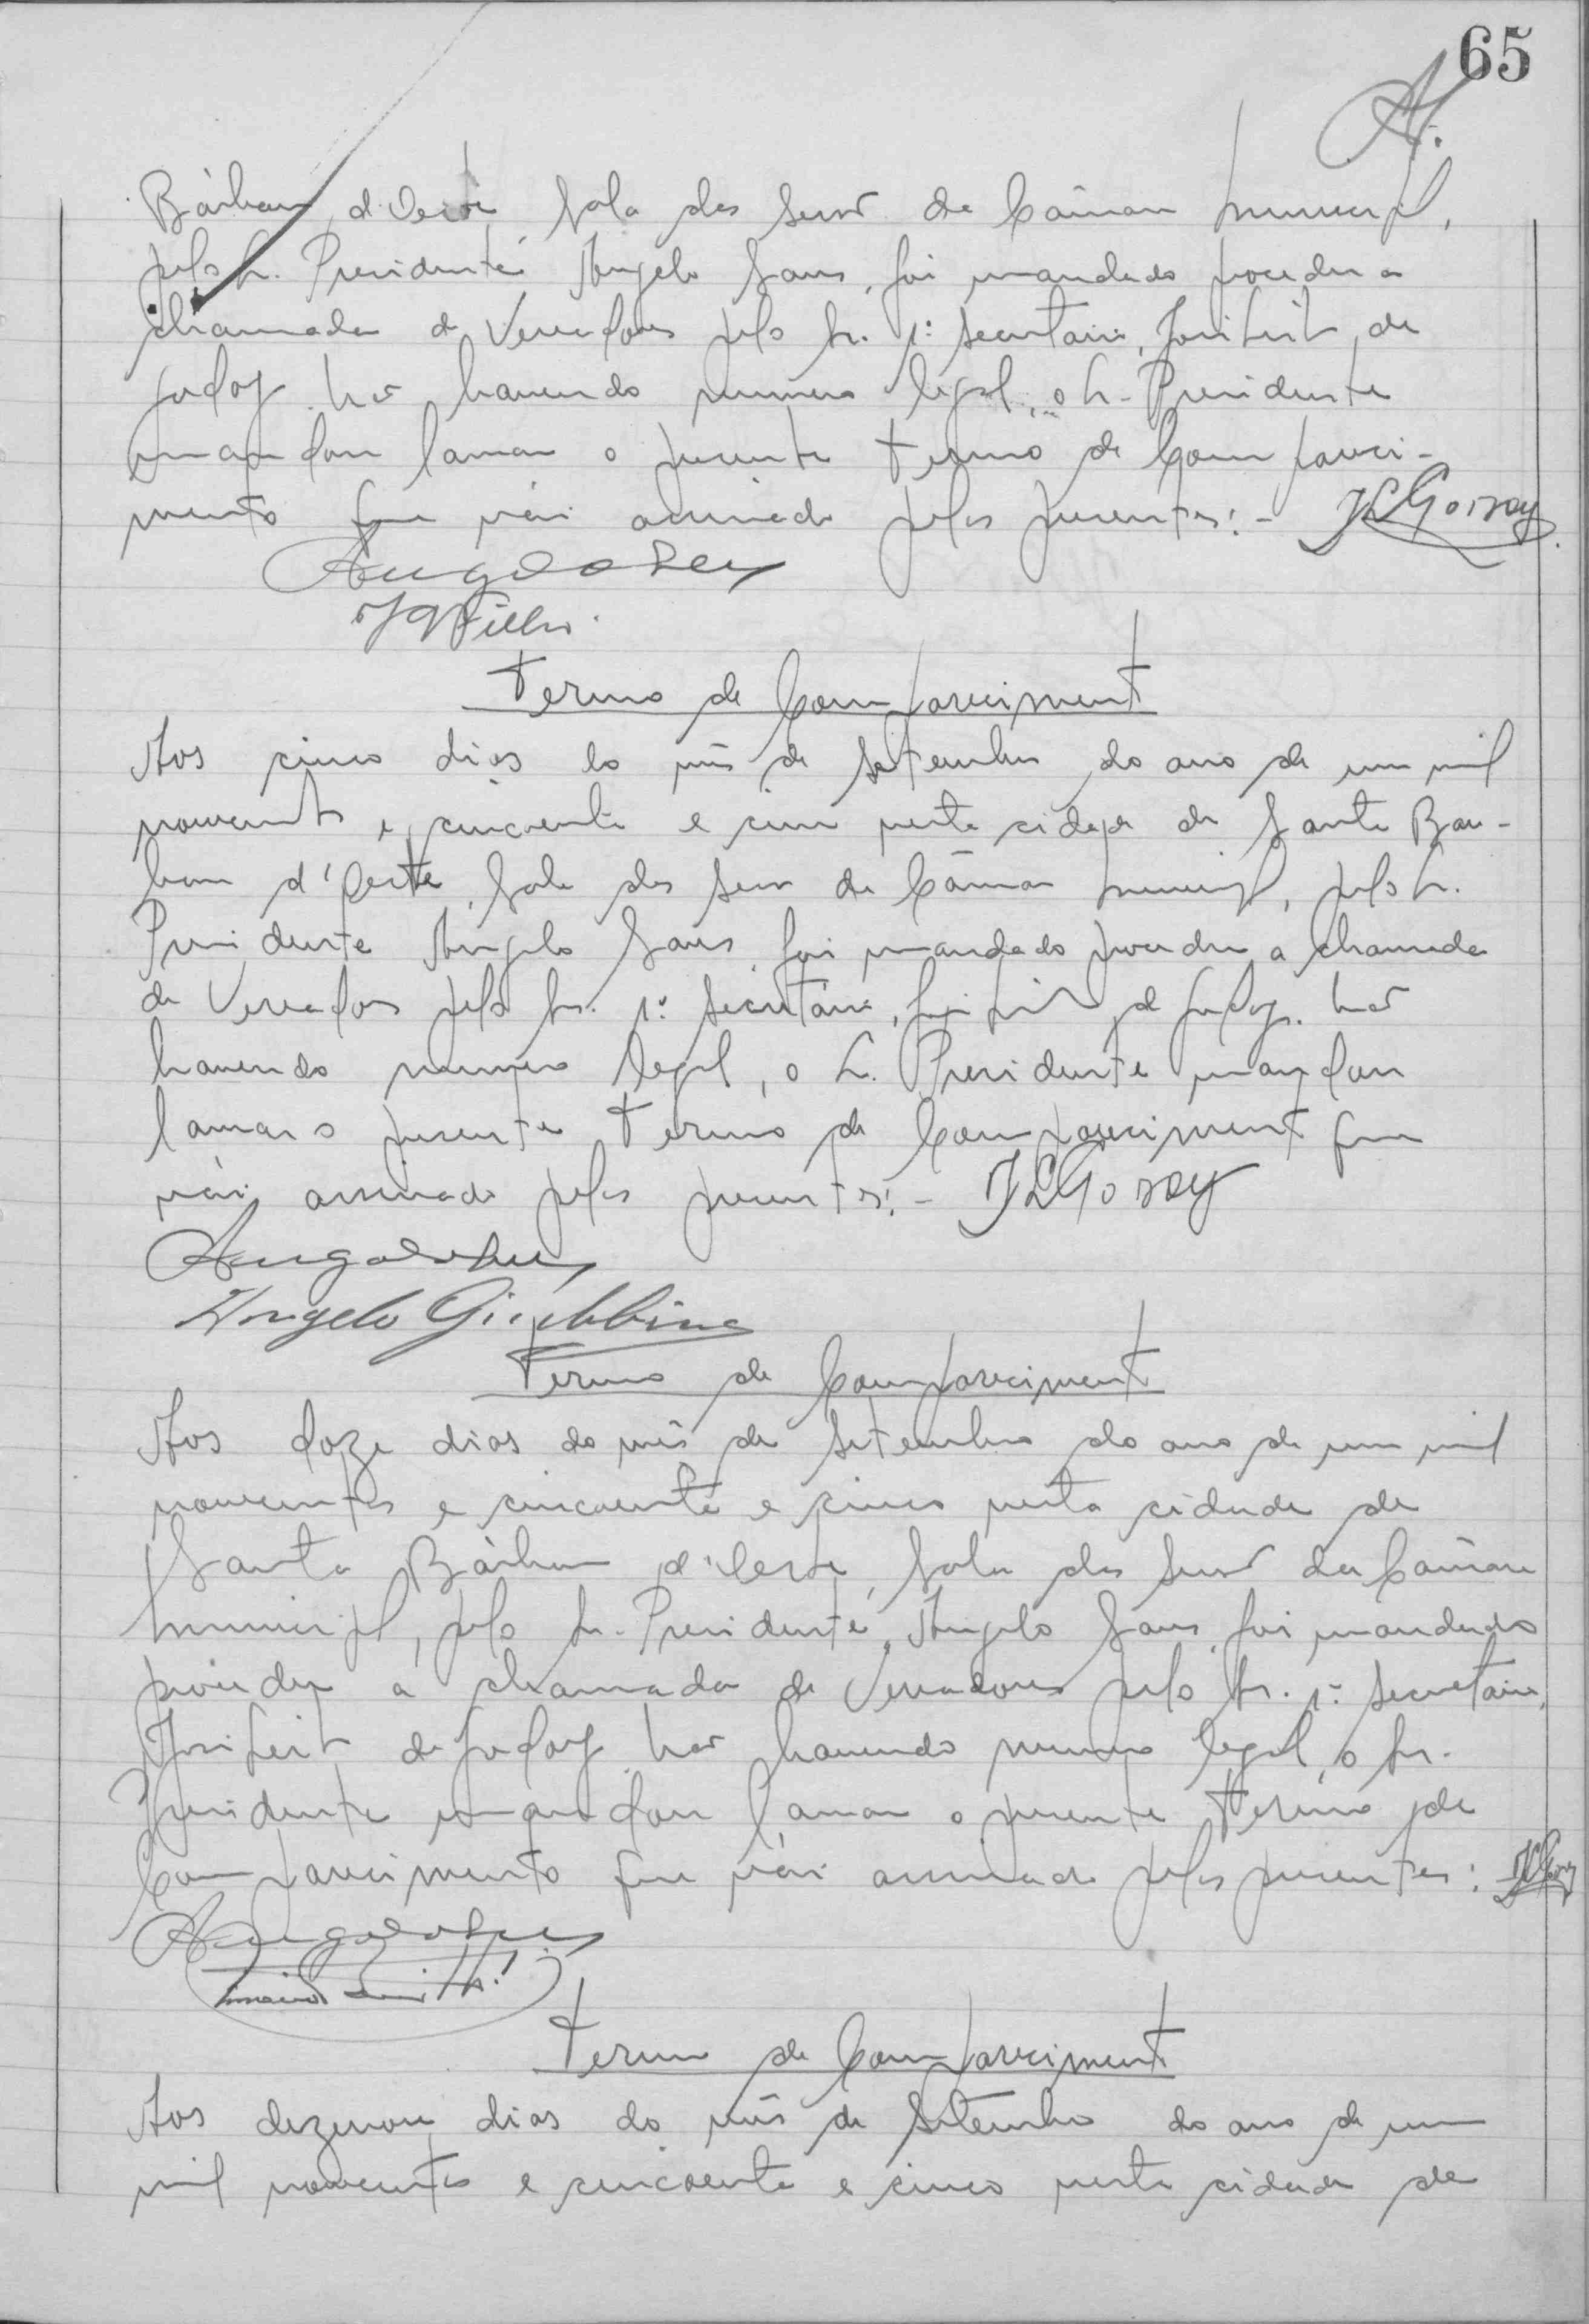 65
A.
Bárbara d'Oeste, Sala das Sessões da Câmara Municipal,
pelo Sr. Presidente Angelo Sans, foi mandado proceder a
chamada de Vereadores pelo Sr. 1º Secretario, José Leite de
Godoy. Não havendo numero legal, o Sr. Presidente
mandou lavrar o presente termo de Compareci-
mento que vai assinado pelos presentes:- JLGodoy
Angelo Sans
Termo de Comparecimento
Aos cinco dias do mês de Setembro do ano de um mil
novecentos e cincoenta e cinco nesta cidade de Santa Bar-
bara d'Oeste, Sala das Sessões da Câmara Municipal, pelo Sr.
Presidente Angelo Sans, foi mandado proceder a chamada
de Vereadores pelo Sr. 1º Secretário, José Leite de Godoy. Não
havendo numero legal, o Sr. Presidente mandou
lavrar o presente termo de Comparecimento que
vai assinado pelos presentes:- JLGodoy
Angelo Sans
Angelo Giubbina
Termo de Comparecimento
Aos doze dias do mês de Setembro do ano de um mil
novecentos e cincoenta e cinco nesta cidade de
Santa Bárbara d'Oeste, Sala das Sessões da Câmara
Municipal, pelo Sr. Presidente, Angelo Sans, foi mandado
proceder a chamada de Vereadores pelo Sr. 1º Secretario,
José Leite de Godoy. Não havendo numero legal, o Sr.
Presidente mandou lavrar o presente termo de
Comparecimento que vai assinado pelos presentes: JLGodoy
Angelo Sans
Termo de Comparecimento
Aos dezenove dias do mês de Setembro do ano de um
mil novecentos e cincoenta e cinco nesta cidade de